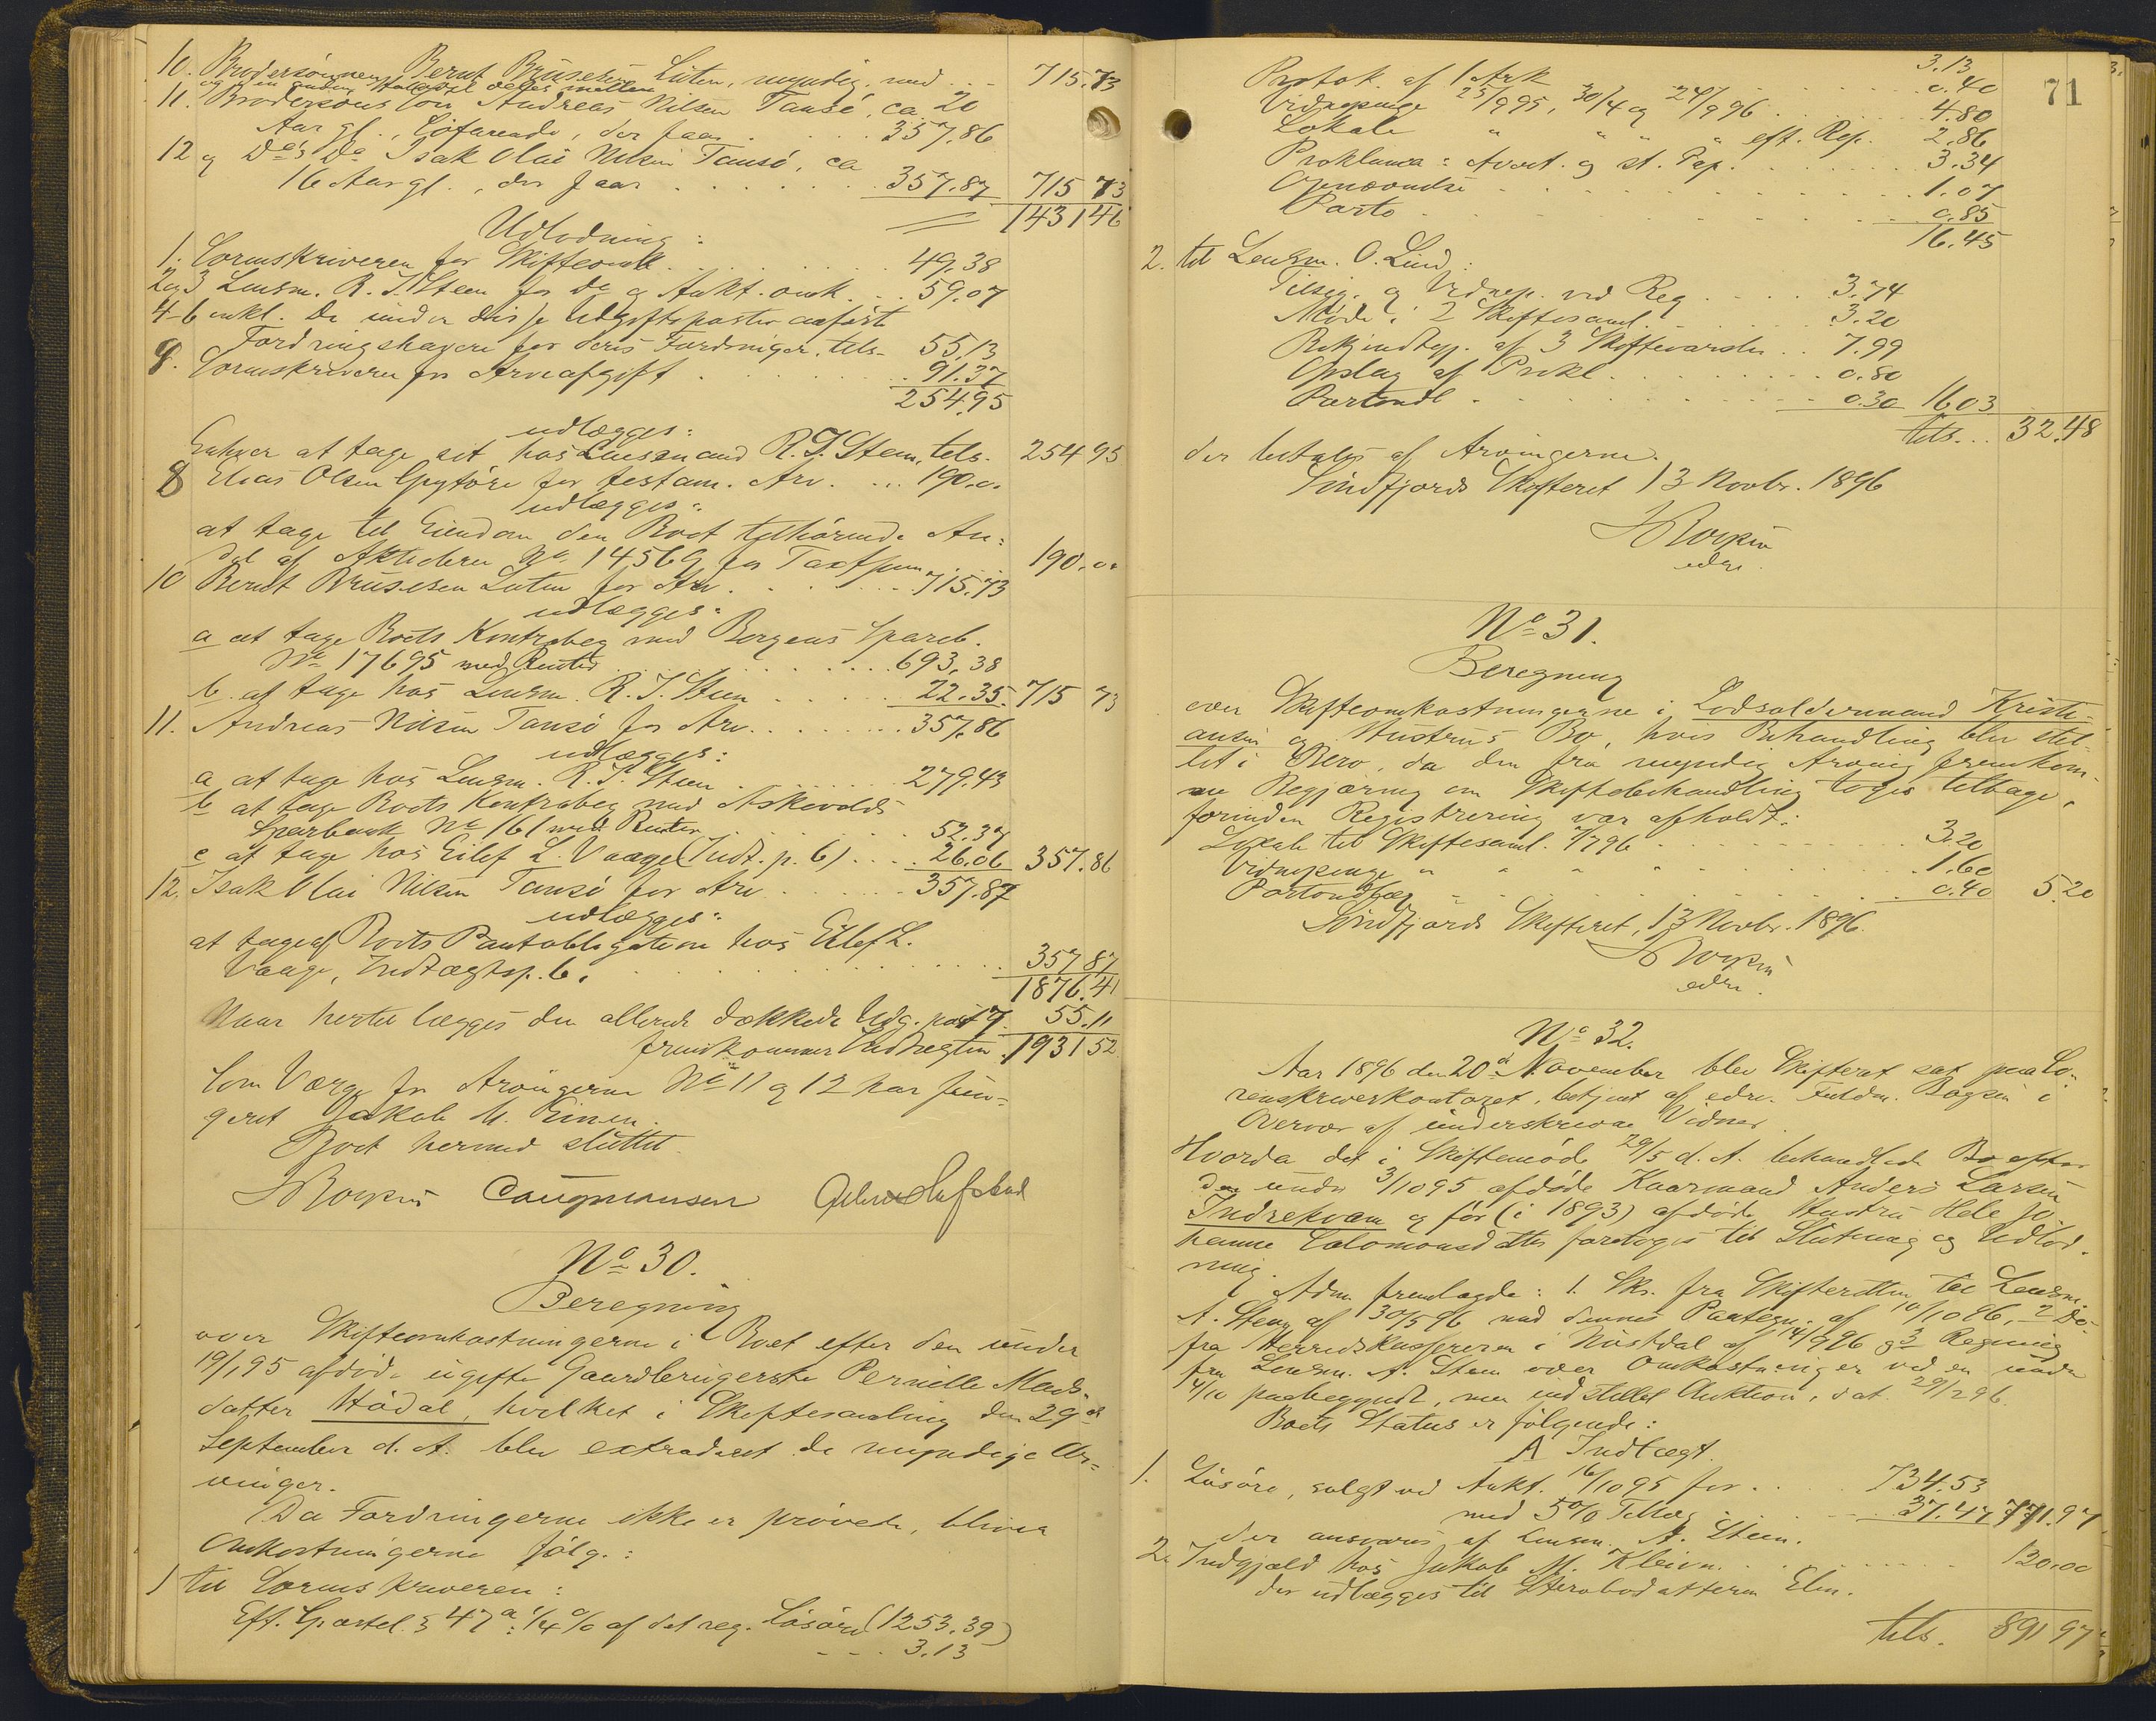 10. Brodersönnen Bernt Brüsesen Luten, myndig, med . . - 715.73
og den anden Halvdel deles mellem
11. Brodersöns Sön Andreas Nilsen Tansö, ca. 20
Aar gl., Söfarende, der faar . . . . 357.86
12 og Do's Do Isak Olai Nilsen Tansö, ca
16 Aar gl., der faar . . . . . . . 357.87 715 73
1431 46
Udlodning:
1. Sorenskriveren for Skifteomk. . . . . . . 49.38
2 og 3 Lensm. R. T. Steen for Do og Aukt. omk. . . 59.07
4-6 inkl. De under disse Udgiftsposter anførte
Fordringshavere for deres Fordringer, tils- 55.13
9. Sorenskriveren for Arveafgift . . . . . 91.37
254.95
udlægges:
Enhver at tage sit hos Lensmand R. T. Steen, tils. 254 95
8 Elias Olsen Grytöre for testam. Arv. . . . 190.0.
udlægges:
at tage til Eiendom den Boet tilhørende An:
del af Aktiebrev No. 14569 for Taxtsum . . 190.00
10 Berndt Brüsesen Luten for Arv . . . . . 715.73
udlægges:
a at tage Boets Kontrabog med Bergens Spareb.
No 17695 med Renter . . . . . . . . . . 693,38
b. at tage hos Lensm. R. T. Steen . . . . 22.35. 715 73
11. Andreas Nilsen Tansö for Arv. . . . . . . . 357.86
udlægges:
a at tage hos Lensm. R. T. Steen . . . . . 279.43
b at tage Boets Kontrabog med Askevolds
Sparbank No 161 med Renter . . . . . . . 52.37
c at tage hos Eilef L. Vaage (Indt. p. 6) . . . . 26.06 357.86
12. Isak Olai Nilsen Tansö for Arv . . . . . 357.87
udlægges:
at tage af Boets Pantobligation hos Eilef L.
Vaage, Indtægtsp. 6. . . . . . . . . . . 357 87
1876.41
Naar hertil lægges den allerede dækkede Udg. post 7 55.11
fremkommer Indtægten . 1931 52
Som Værge for Arvingerne No 11 og 12 har fun-
geret Jakob M. Einen.
Boet hermed sluttet.
No 30.
Beregning
over Skifteomkostningerne i Boet efter den under
19/1 95 afdöde ugifte Gaardbrugerske Pernille Mads-
datter Hödal, hvilket i Skiftesamling den 29de
September d. A. blev extraderet de myndige Ar-
vinger.
Da Fordringerne ikke er prövede, bliver
Omkostningerne fölg.:
1 til Sorenskriveren:
Eft. Sportel. § 47a: 1/4 % af det reg. Lösöre (1253.39)
- - - 3.13
71
3.13
Protok. af 1 Ark . . . . . . . . 0.40
Vidnepenge 25/9 95, 30/4 og 24/9 96 . . . . . . 4.80
Lokale " " " " eft. Rep. 2.86
Proklama: Avert. og st. Pap. . . . . . . . 3.34
Gjenvordse . . . . . . . . . . 1.07
Porto . . . . . . . . . . . 0.85
16.45
2. til Lensm. O. Lind:
Tilsig. og Vidnep. ved Reg . . . . 3.74
Möde i 2 Skiftesaml. . . . . . . . 3.20
Bekjendtgj. af 3 Skiftevarsler . . 7.99
Opslag af Prokl. . . . . . . . . 0.80
Portoudl . . . . . . . . . . . 0.30 16.03
tils. . . 32.48
der betales af Arvingerne.
Söndfjords Skifteret 13 Novbr. 1896
edsv.
No 31.
Beregning
over Skifteomkostningerne i Lodsoldermand Kristi-
ansen og Hustrus Bo, hvis Behandling blev stil-
let i Bero, da den fra myndig Arving fremkom-
ne Begjæring om Skiftebehandling toges tilbage,
forinden Registrering var afholdt:
Lokale til Skiftesaml. 7/7 96 . . . . . . . . . . 3.20
Vidnepenge " " " " . . . . . . . 1.60
Portoudlæg . . . . . . . . . . . . . 0.40 5.20
Söndfjords Skifteret, 13 Novbr. 1896.
edsv.
No 32.
Aar 1896 den 20de November blev Skifteret sat paa So-
renskriverkontoret, betjent af edsv. Fuldm. Boysen i
Overvær af underskrevne Vidner.
Hvorda det i Skiftemöde 29/5 d. A. behandlede Bo efter
den under 3/10 95 afdöde Kaarmand Anders Larsen
Indrekvam og før (i 1893) afdöde Hustru Hele Jo-
hanne Salomonsdatter foretoges til Slutning og Udlod-
ning.
Adm. fremlagde: 1. Skr. fra Skifteretten til Lensm.
A. Steen af 30/5 96 med dennes Paategn. af 10/10 96, 2 Do
fra Herredskassereren i Naustdal af 14/9 96 og 3 Regning
fra Lensm. A. Steen over Omkostninger ved en under
4/10 paabegyndt, men indstillet Auktion, dat. 29/2 96.
Boets Status er fölgende:
A Indtægt.
1. Lösöre, solgt ved Aukt. 16/10 95 for . . . . 734.53
med 5% Tillæg . . - . . 37.47 771.97
der ansvares af Lensm. A. Steen.
2. Indgjæld hos Jakob M. Kleivn. . . . . . . . . . 120.00
der udlægges til Sterbodatteren Elen.
tils. 891 97